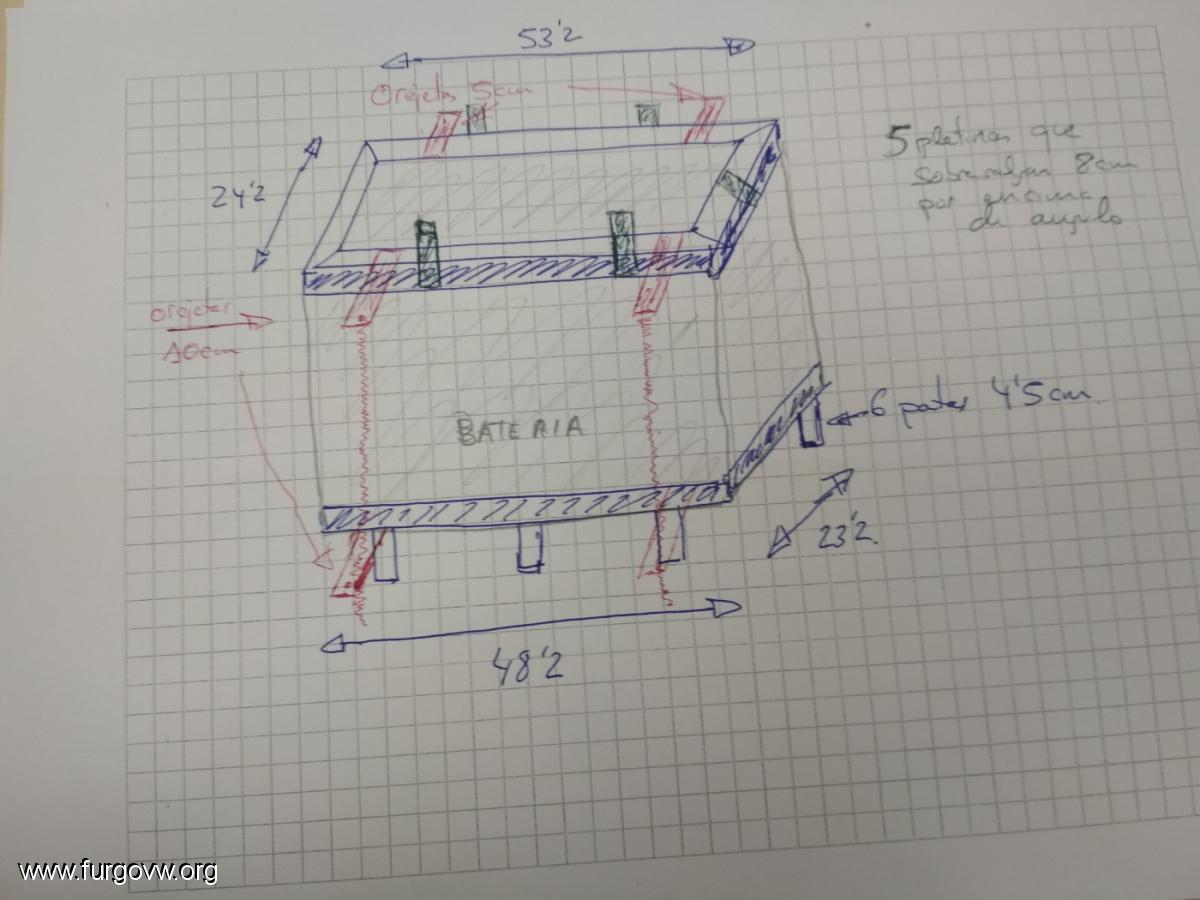 53'2
Orejetas 5cm
24'2
5 pletinas que
sobresalgan 8cm
por encima
de angulo
orejetas
10cm
BATERIA
6 patas 4'5 cm.
23'2.
48'2
www.furgovw.org